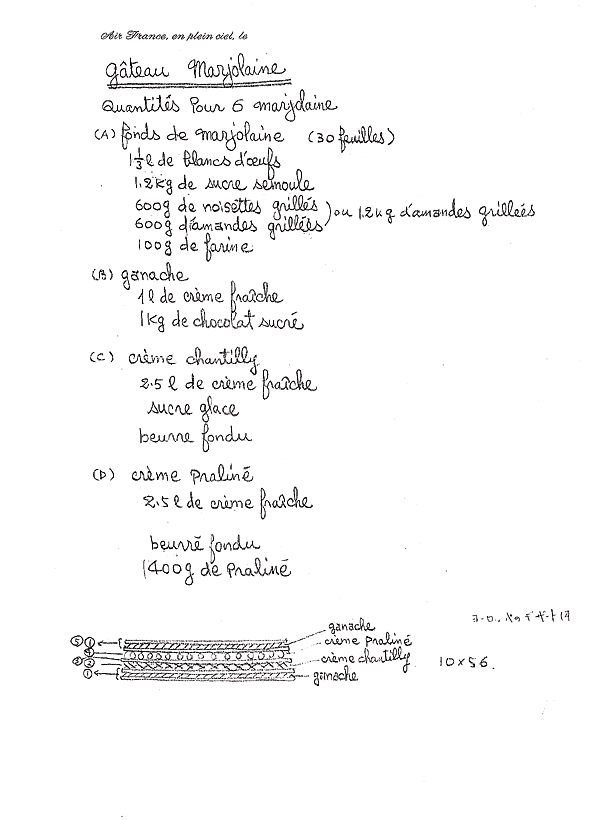 Air France, en plein ciel, le
gâteau Marjolaine
Quantités Pour 6 marjolaine
(A) fonds de marjolaine (30 feuilles)
1 1/3 l de blancs d'œufs
1,2 kg de sucre semoule
600g de noisettes grillés
600g d'amandes grillées } ou 1,2 kg d'amandes grilleés
100g de farine
(B) ganache
1 l de crème fraîche
1 kg de chocolat sucré
(C) crème chantilly
2.5 l de crème fraîche
sucre glace
beurre fondu
(D) crème praliné
2.5 l de crème fraîche
beurré fondu
1400g de Praliné
ganache
crème praliné
crème chantilly
ganache
⑤ ①
④
③ ②
①
10×56.